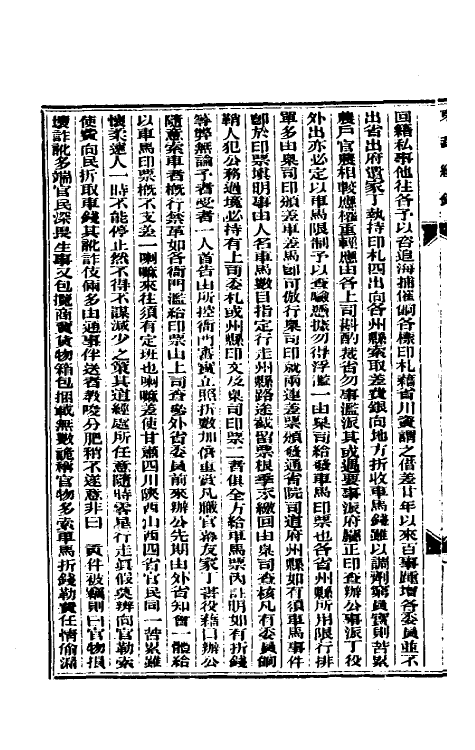 回籍私事他往各予以咨追海捕催餉各樣印札藉省川資謂之借差廿年以來百事踵增各委員並不
出省出府價家丁執持印札四出向各州縣索取差費銀向地方折收車馬錢雖以調劑窮員實則苦累
農戶官農相較應權重輕應由各上司斟酌裁省勿事濫派其或遇要事派府廳正印查辦公事派丁役
外出亦必定以車馬限制予以查驗憑據勿得浮濫一由臬司給發車馬印票也各省州縣所用限行排
單多由臬司印頒差車差馬卽可倣行臬司印就兩連差票頒發通省院司道府州縣如有須車馬事件
卽於印票填明事由人名車馬數目指定行走州縣路途截留票根季末繳回由臬司查核凡有委員餉
鞘人犯公務過境必持有上司委札或州縣印文及臬司印票二者俱全方給車馬票內註明如有折錢
等弊無論予者受者一人首告由所控衙門審實立照折數加倍重賞凡職官幕友家丁書役藉口辦公
隨意索車者槪行禁革如各衙門濫給印票由上司查參外省委員前來辦公先期由外省知會一體給
以車馬印票槪不支差一喇嘛來往須有定班也喇嘛差使甘肅四川陝西山西四省官民同一苦累雖
懷柔遠人一時不能停止然不得不謀減少之策其道經處所任意隨時零星行走眞假莫辨向官勒索
使費向民折取車錢其訛詐伎倆多由通事伴送者教唆分肥稍不遂意非曰 貢件被竊則曰官物損
壞詐訛多端官民深畏生事又包攬商賈貨物箱包捆載無數詭稱官物多索車馬折錢勒費任情偷漏